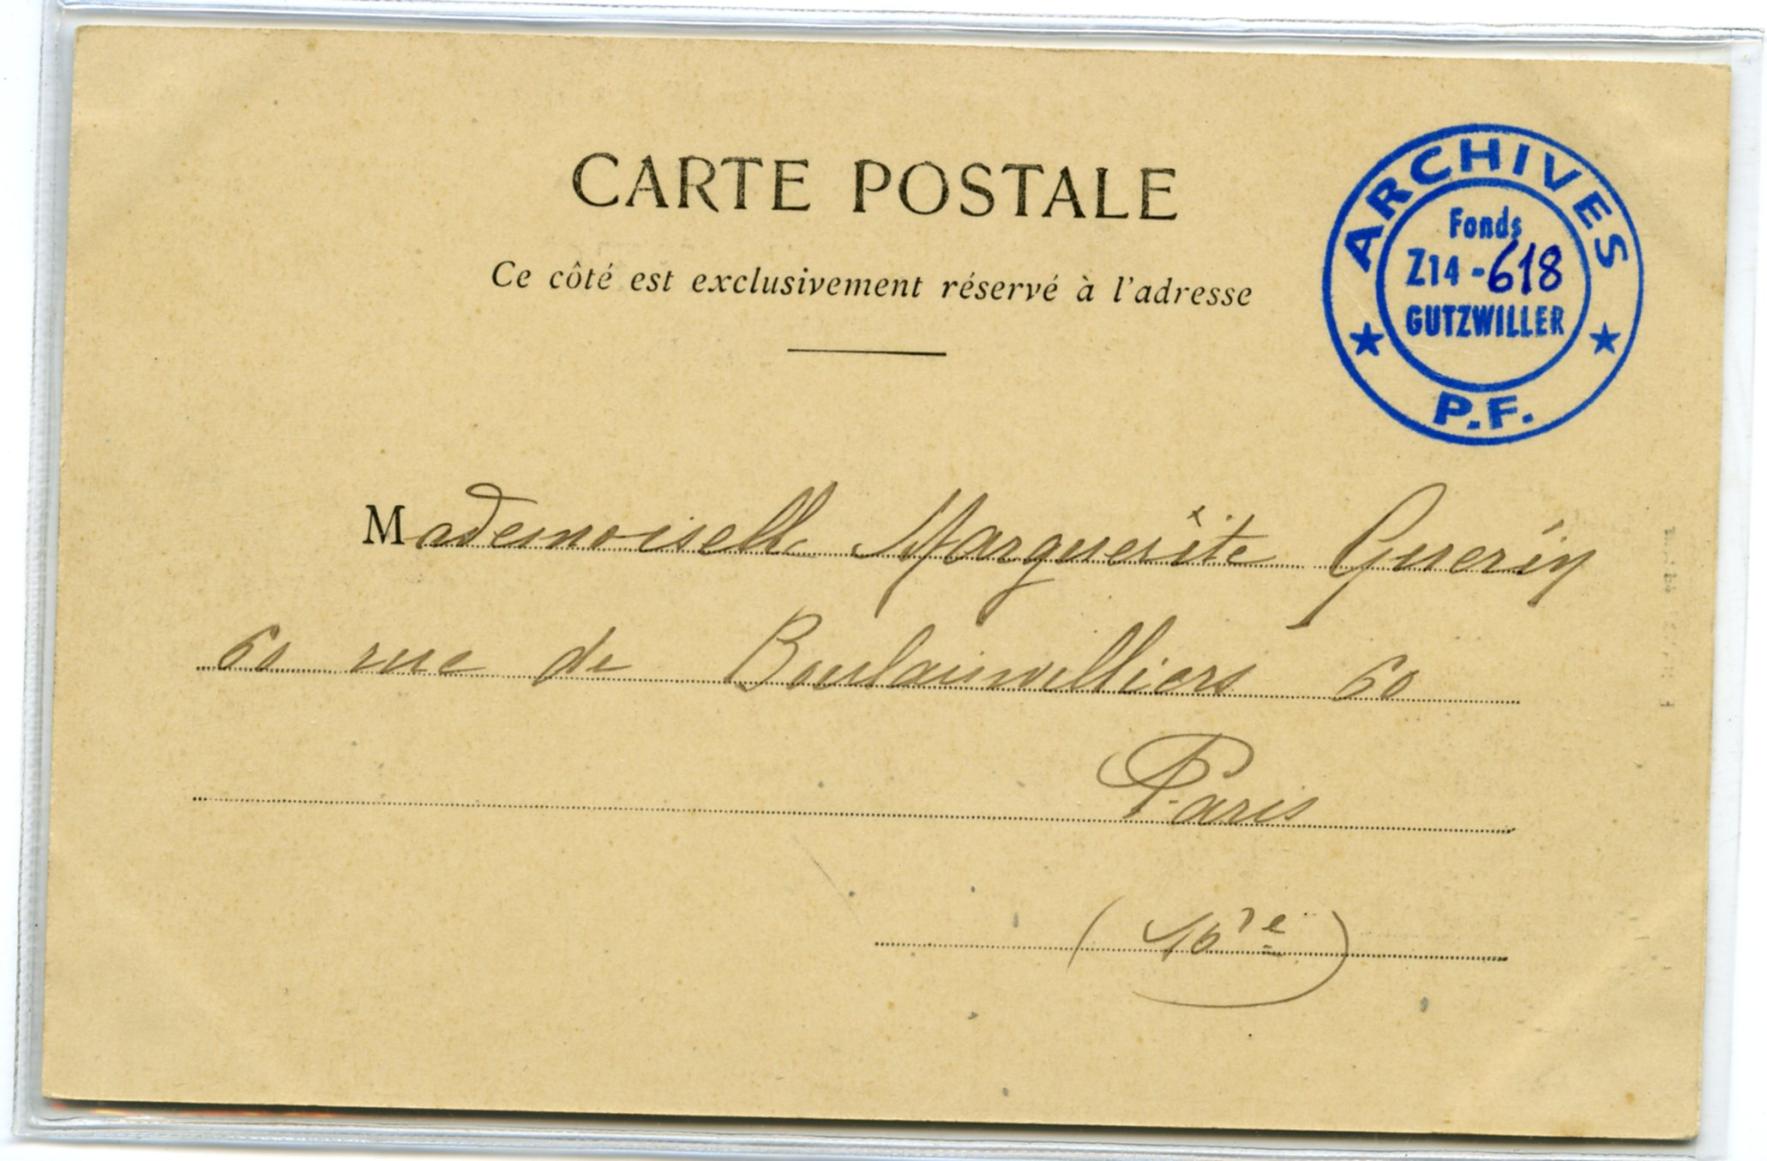 CARTE POSTALE
Ce côté est exclusivement réservé à l'adresse
ARCHIVES
Fonds
Z14 -618
GUTZWILLER
P.F.
Mademoiselle Marguerite Guerin
60 rue de Boulainvilliers 60
Paris
(16e)